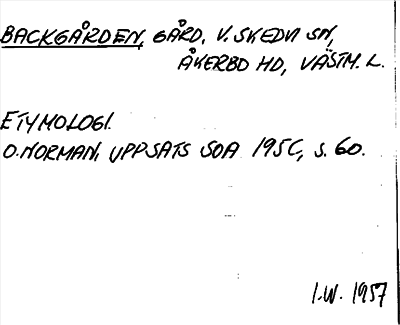 BACKGÅRDEN, GÅRD, V. SKEDVI SN,
ÅKERBO HD, VÄSTM. L.
ETYMOLOGI.
O. NORMAN, UPPSATS SOA 1950, S. 60.
I.W. 1957